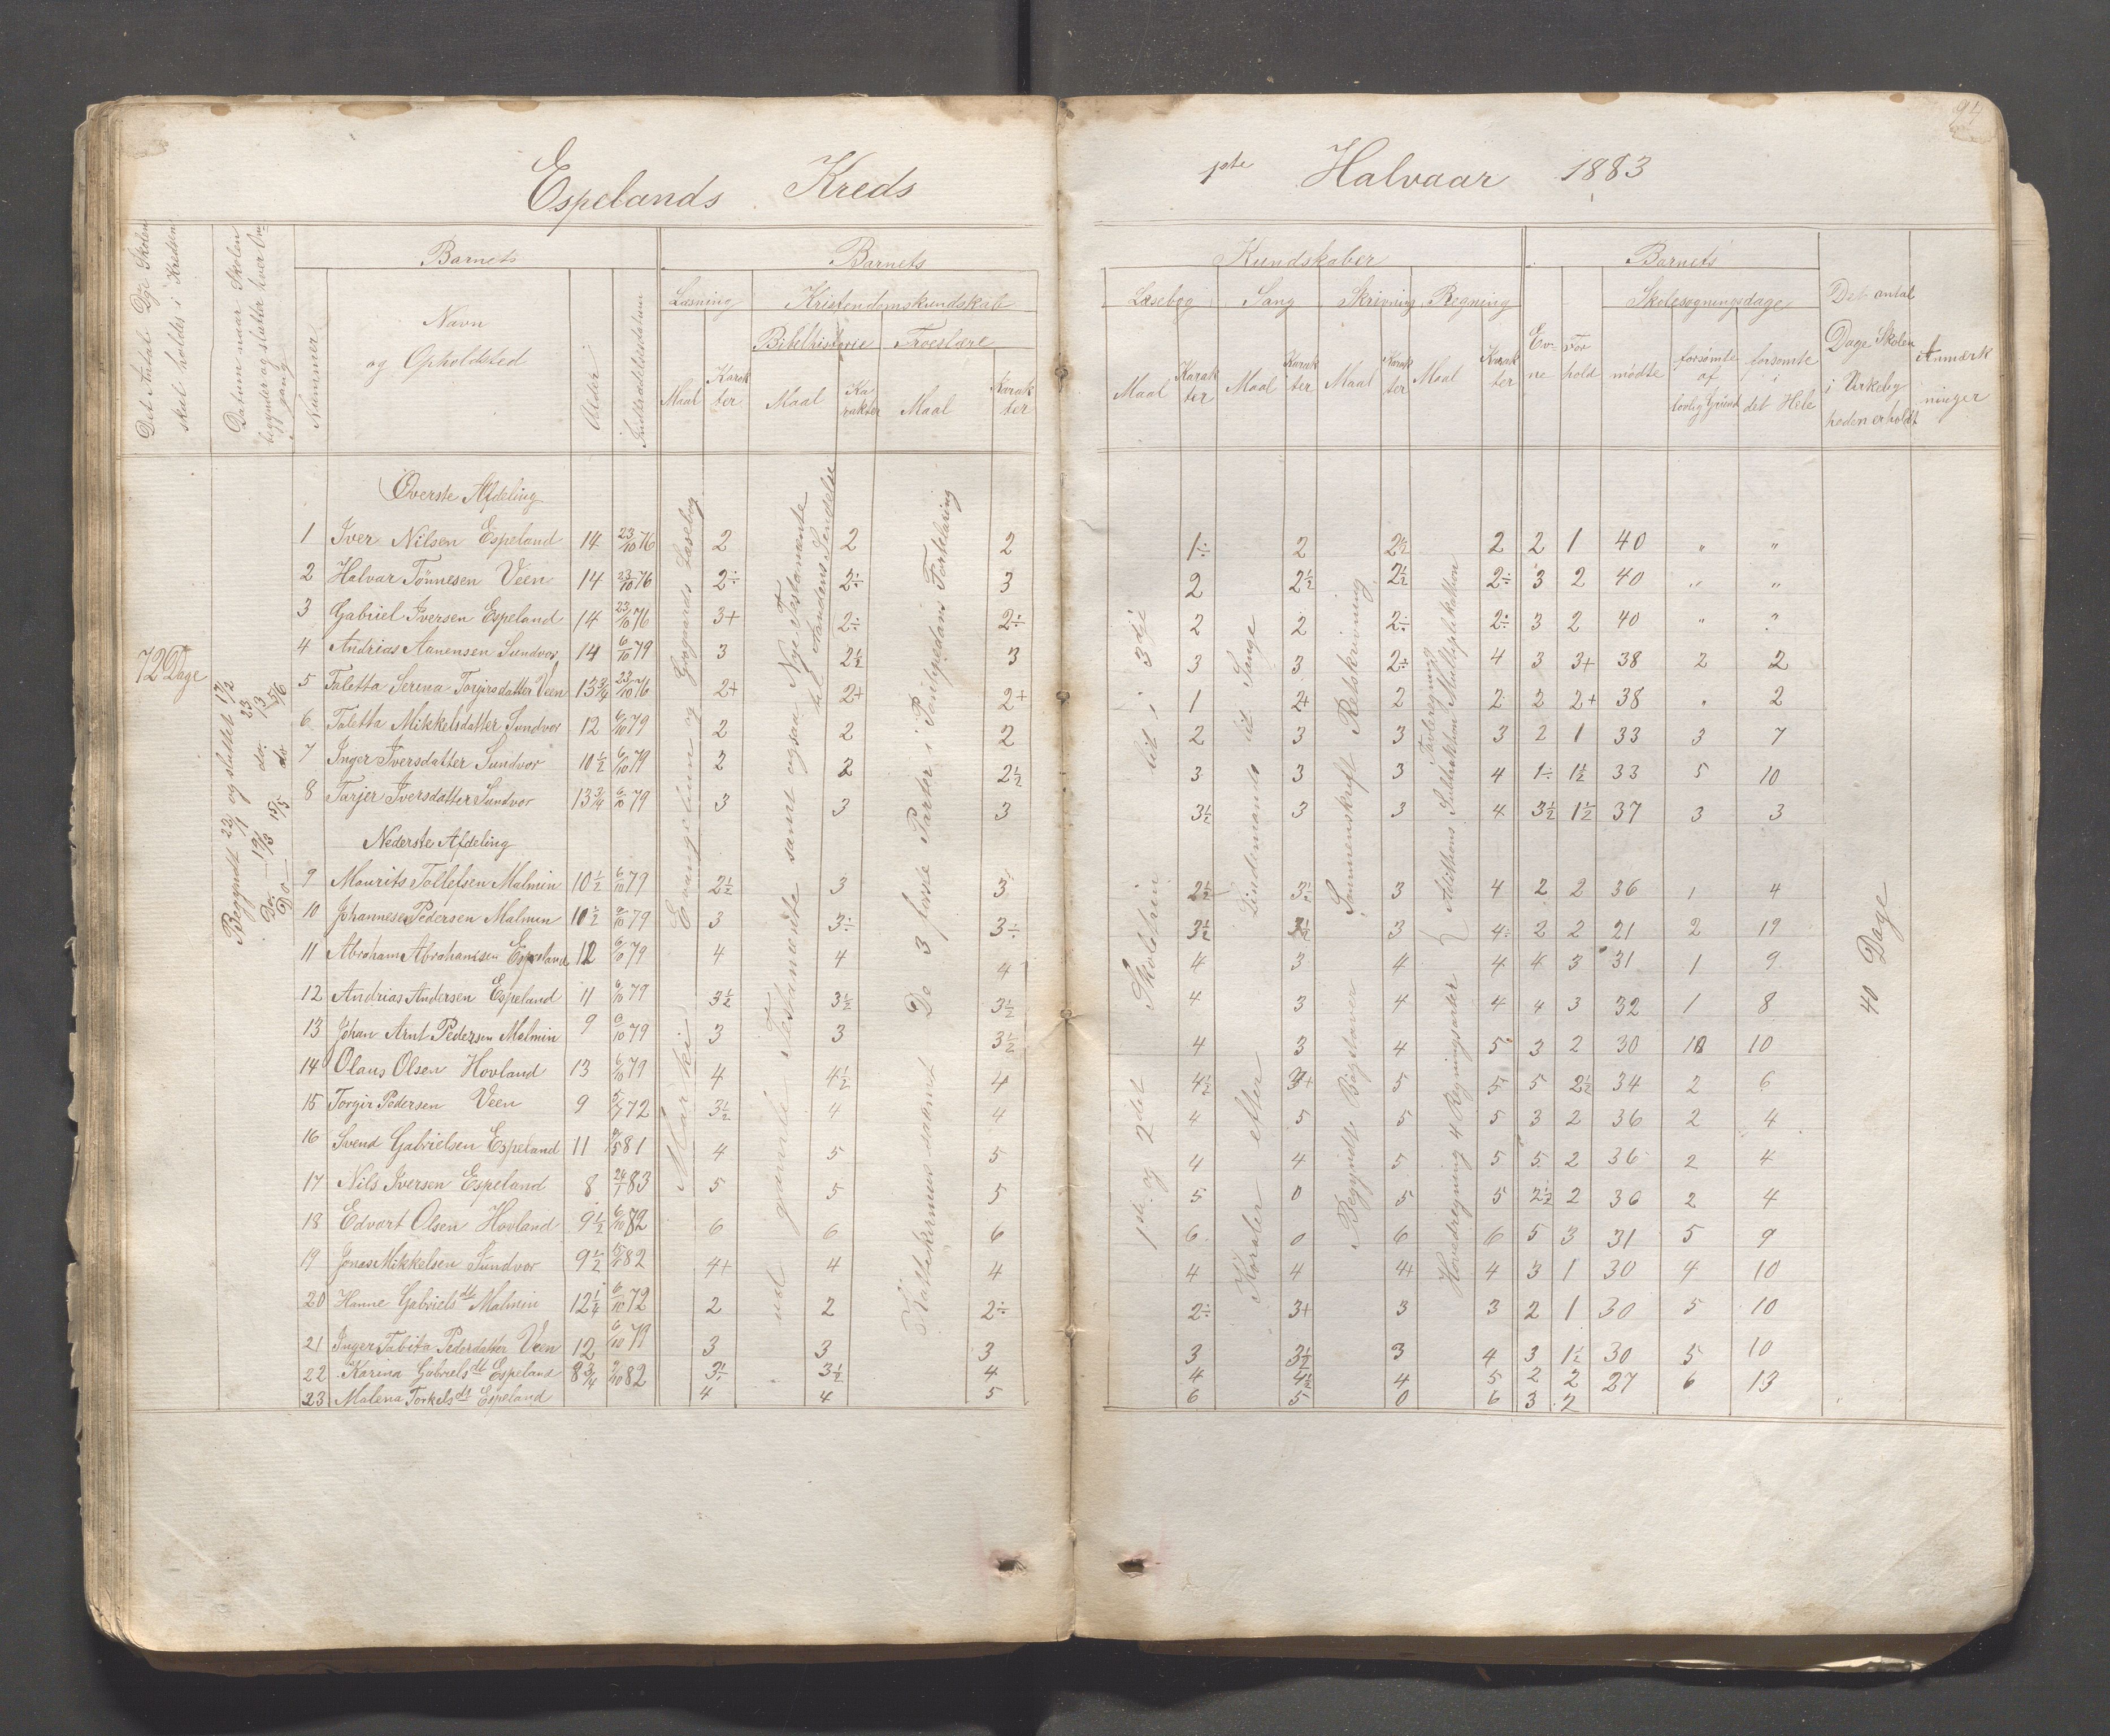 94
Espelands Kreds
1ste Halvaar 1883
Det Antal Dge Skolen skal holdes i Kredsen
Datum naar Skolen begynder og slutter hver Omgang
Nummer
Barnets
Navn og Opholdsted
Alder
Indtrædelsesdatum
Barnets
Læsning
Maal
Karakter
Kristendomskundskab
Bibelhistorie
Maal
Karakter
Troeslære
Maal
Karakter
Kundskaber
Læsebog
Maal
Karakter
Sang
Maal
Karakter
Skrivning
Maal
Karakter
Regning
Maal
Karakter
Barnets
Evne
Forhold
Skolesøgningsdage
mødte
forsømte af lovlig Grund
forsømte i det Hele
Det antal Dage Skolen i Virkeligheden er holdt
Anmærkninger
72 Dage
Begyndt 22/1 og sluttet 17/2
Do. — 12/3 do. 13
Do — 15/5 do 5/6
Øverste Afdeling
1 Iver Nilsen Espeland 14 23/10 76 2 2 2 1÷ 2 2½ 2 2 1 40 " "
2 Halvar Tønnesen Veen 14 23/10 76 2÷ 2÷ 3 2 2½ 2½ 2÷ 3 2 40 " "
3 Gabriel Iversen Espeland 14 23/10 76 3+ 2÷ 2÷ 2 2 2÷ 2÷ 3 2 40 "
4 Andrias Aanensen Sundvor 14 6/10 79 3 2½ 3 3 3 2÷ 4 3 3+ 38 2 2
5 Taletta Serina Torgirsdatter Veen 13¾ 23/10 76 2+ 2+ 2+ 1 2+ 2 2 2 2+ 38 " 2
6 Taletta Mikkelsdatter Sundvor 12 6/10 79 2 2 2 2 3 3 3 2 1 33 3 7
7 Inger Iversdatter Sundvor 10½ 6/10 79 2 2 2½ 3 3 3 4 1÷ 1½ 33 5 10
8 Tarjer Iversdatter Sundvor 13¾ 6/10 79 3 3 3 3½ 3 3 4 3½ 1½ 37 3 3
Nederste Afdeling
9 Maurits Tollefsen Malmin 10½ 6/10 79 2½ 3 3 2½ 3÷ 3 4 2 2 36 1 4
10 Johannes Pedersen Malmin 10½ 6/10 79 3 3÷ 3÷ 3½ 3 4÷ 2 2 21 2 19
11 Abraham Abrahamsen Espeland 12 6/10 79 4 4 4 4 3 4 4 4 3 31 1 9
12 Andrias Andersen Espeland 11 6/10 79 3½ 3½ 3½ 4 3 4 4 4 3 32 1 8
13 Johan Arnt Pedersen Malmin 9 6/10 79 3 3 3½ 4 3 4 5 3 2 30 10 10
14 Olaus Olsen Hovland 13 6/10 79 4 4½ 4 4½ 3+ 5 5 5 2½ 34 2 6
15 Torgir Pedersen Veen 9 5/7 72 3½ 4 4 4 5 5 5 3 2 36 2 4
16 Svend Gabrielsen Espeland 11 81 4 5 5 4 4 5 5 5 2 36 2 4
17 Nils Iversen Espeland 8 24/1 83 5 5 5 5 0 5 5 2½ 2 36 2 4
18 Edvart Olsen Hovland 9½ 6/10 82 6 6 6 6 0 6 6 5 3 31 5 9
19 Jonas Mikkelsen Sundvor 9½ 82 4+ 4 4 4 4 4+ 4 3 1 30 4 10
20 Hanne Gabrielsdt Malmin 12¼ 6/10 72 2 2 2÷ 2÷ 3+ 3 3 2 1 30 5 10
21 Inger Tabita Pedersdatter Veen 12 6/10 79 3 3 3 3 3½ 3 4 3 1½ 30 5 10
22 Karina Gabrielsdt Espeland 8¾ 82 3½ 3½ 4 4 4½ 4 5 2 2 27 6 13
23 Malena Torkelsdt Espeland 4 4 5 6 5 0 6 3 2
Mar ki Evangelium og Grøgaards Læsebog
ud gamle Testamente samt ogsaa Nye Testamente til Aandens Sendelse
Katekismus samt De 3 første Parter i Pontopedans Forklaring
1ste og 2det Skoletrin til i 3dje
Koraler efter Lindemands til Sange
Begyndt Bogstaver Sammenskrift Retskrivning
Hovedregning 4 Regningsarter { Adithons Subtrakthon Multiplikathon
Tavleregning
40 Dage